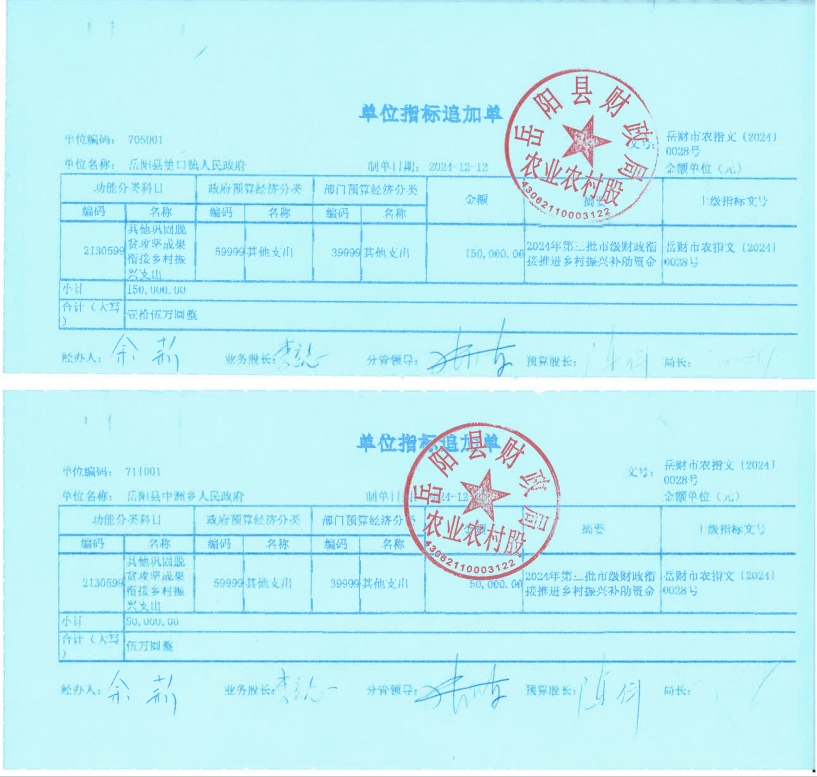 单位指标追加单
单位编码： 705001 文号： 岳财市农指文〔2024〕
0028号
单位名称： 岳阳县垫口镇人民政府 制单日期： 2024-12-12 金额单位（元）
功能分类科目 政府预算经济分类 部门预算经济分类 金额 摘要 上级指标文号
编码 名称 编码 名称 编码 名称
2130599 其他巩固脱贫攻坚成果衔接乡村振兴支出 59999 其他支出 39999 其他支出 150,000.00 2024年第二批市级财政衔接推进乡村振兴补助资金 岳财市农指文〔2024〕0028号
小计 150,000.00
合计（大写） 壹拾伍万圆整
经办人： 余 业务股长： 分管领导： 预算股长： 局长：
岳阳县财政局
农业农村股
43062110003122
单位指标追加单
单位编码： 711001 文号： 岳财市农指文〔2024〕
0028号
单位名称： 岳阳县中洲乡人民政府 制单日 2024-12-12 金额单位（元）
功能分类科目 政府预算经济分类 部门预算经济分类 金额 摘要 上级指标文号
编码 名称 编码 名称 编码 名称
2130599 其他巩固脱贫攻坚成果衔接乡村振兴支出 59999 其他支出 39999 其他支出 50,000.00 2024年第二批市级财政衔接推进乡村振兴补助资金 岳财市农指文〔2024〕0028号
小计 50,000.00
合计（大写） 伍万圆整
经办人： 余 业务股长： 分管领导： 预算股长： 局长：
岳阳县财政局
农业农村股
43062110003122